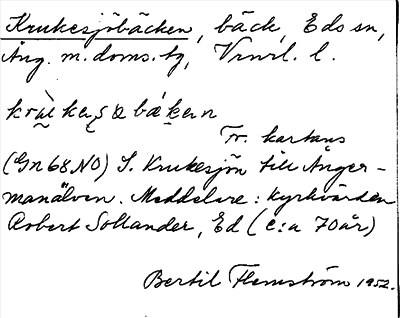 Krukesjöbäcken, bäck, Eds sn,
Ång. m. doms. tg, Vrnrl. l.
Fr. kartans
(Gn 68 NO) S. Krukesjön till Ånger-
manälven. Meddelare: kyrkvärden
Robert Sollander, Ed (c:a 70 år)
Bertil Flemström 1952.